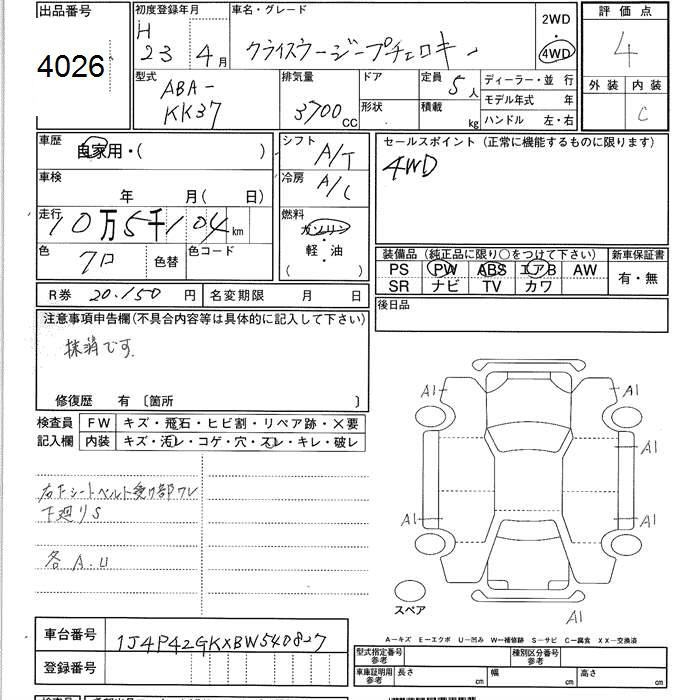 出品番号
4026
初度登録年月
H 23 年 4 月
車名・グレード
クライスラージープチェロキー
2WD
4WD
評価点
4
外装 内装
C
型式
ABA-
KK37
排気量
3700 CC
ドア
形状
定員 5 人
積載 kg
ディーラー・並 行
モデル年式 年
ハンドル 左・右
車歴
自家用・( )
車検
年 月( 日)
走行
10万5千104 km
色
クロ
色替
色コード
シフト
A/T
冷房
A/C
燃料
ガソリン
・
軽・油
( )
セールスポイント (正常に機能するものに限ります)
4WD
装備品 (純正品に限り○をつけて下さい)
新車保証書
PS PW ABS エアB AW
SR ナビ TV カワ
有・無
R券 20.150 円
名変期限 月 日
後日品
注意事項申告欄(不具合内容等は具体的に記入して下さい)
抹消です.
修復歴 有 〔箇所 〕
検査員
記入欄
FW キズ・飛石・ヒビ割・リペア跡・×要
内装 キズ・汚レ・コゲ・穴・スレ・キレ・破レ
右下シートベルト受け部ワレ
下廻りS
各A.U
A1
A1
A1
A1
A1
A1
スペア
A―キズ E―エクボ U―凹み W―補修跡 S―サビ C―腐食 XX―交換済
車台番号
1J4P42GKXBW540827
登録番号
型式指定番号
参考
種別区分番号
参考
車庫証明用
参考
長さ cm
幅 cm
高さ cm